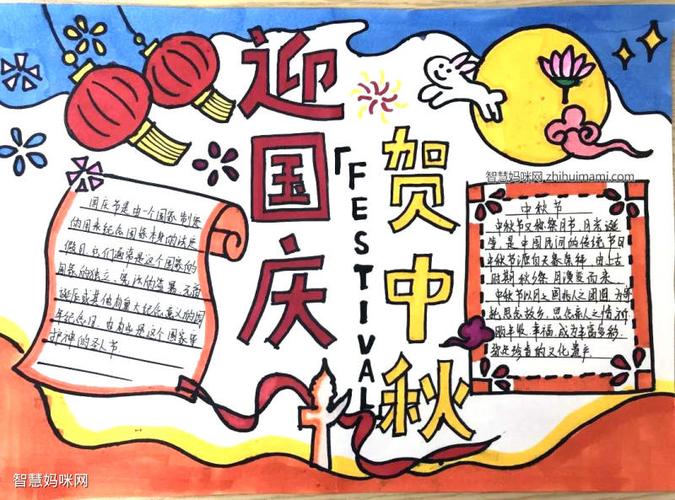 迎国庆
「FESTIVAL
贺中秋
智慧妈咪网.zhihuimami.com
国庆节是由一个国家制定
的用来纪念国家本身的法定
假日,它们通常是这个国家的
国家的独立、宪法的签署、元首
诞辰或其他有重大纪念意义的周
年纪念日,也有些是这个国家守
护神的圣人节
中秋节
中秋节又称祭月节、月光诞
生 是中国民间的传统节日
中秋节源自天象崇拜,由上古
时期秋夕祭月演变而来.
中秋节以月之圆兆人之团圆,为寄
托思念故乡,思念亲人之情,祈
盼丰收、幸福,成为丰富多彩
弥足珍贵的文化遗产
智慧妈咪网